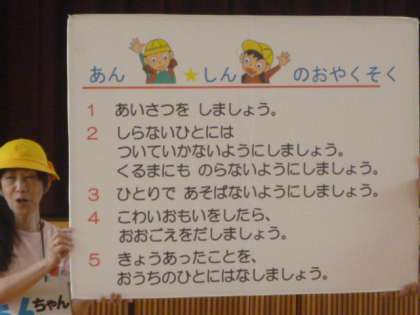 あん ★しん のおやくそく
1 あいさつを しましょう。
2 しらないひとには
ついていかないようにしましょう。
くるまにも のらないようにしましょう。
3 ひとりで あそばないようにしましょう。
4 こわいおもいをしたら、
おおごえをだしましょう。
5 きょうあったことを、
おうちのひとにはなしましょう。
んちゃん